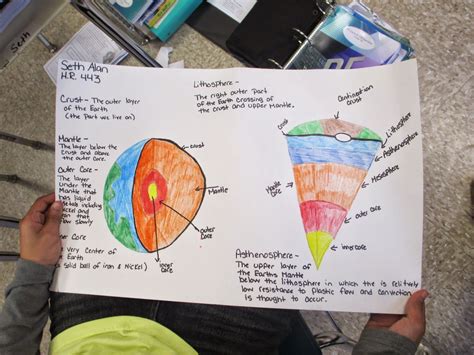 Seth Alan
H.R. 443
Crust - The outer layer
of the Earth
(the Part we live on)
Mantle -
The layer below the
crust and above
the outer core.
Outer Core -
The layer
under the
Mantle that
has liquid
metals including
Nickel and
Iron that
flow slowly
very Center of
Earth
solid ball of iron & Nickel)
crust
Mantle
outer
core
Inner
core
Lithosphere -
The right outer Part
of the Earth crossing of
the crust and upper Mantle,
crust
crust
Lithosphere
Asthenosphere
Mesosphere
Mantle
Core
outer core
inner core
Asthenosphere -
The upper layer of
the Earths Mantle
below the lithosphere in which the is relitively
low resistance to plastic flow and convection
is thought to occur.
Seth